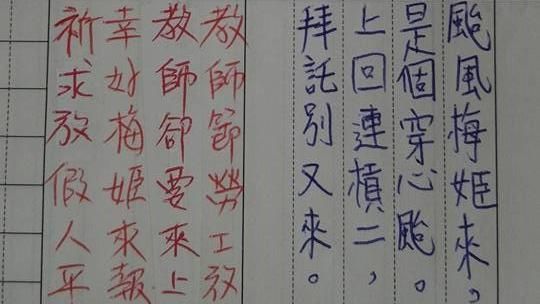 颱風梅姬來，
是個穿心颱。
上回連槓二，
拜託別又來。
教師節勞工放
教師卻要來上
幸好梅姬來報
祈求放假人平